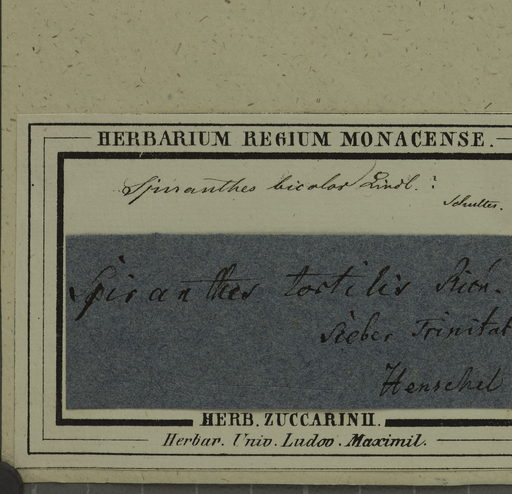 HERBARIUM REGIUM MONACENSE.
Spiranthes bicolor Lindl. ?
Schultes.
Spiranthes tortilis Rich.
Sieber Trinitat
Henschel
HERB. ZUCCARINII.
Herbar. Univ. Ludov. Maximil.